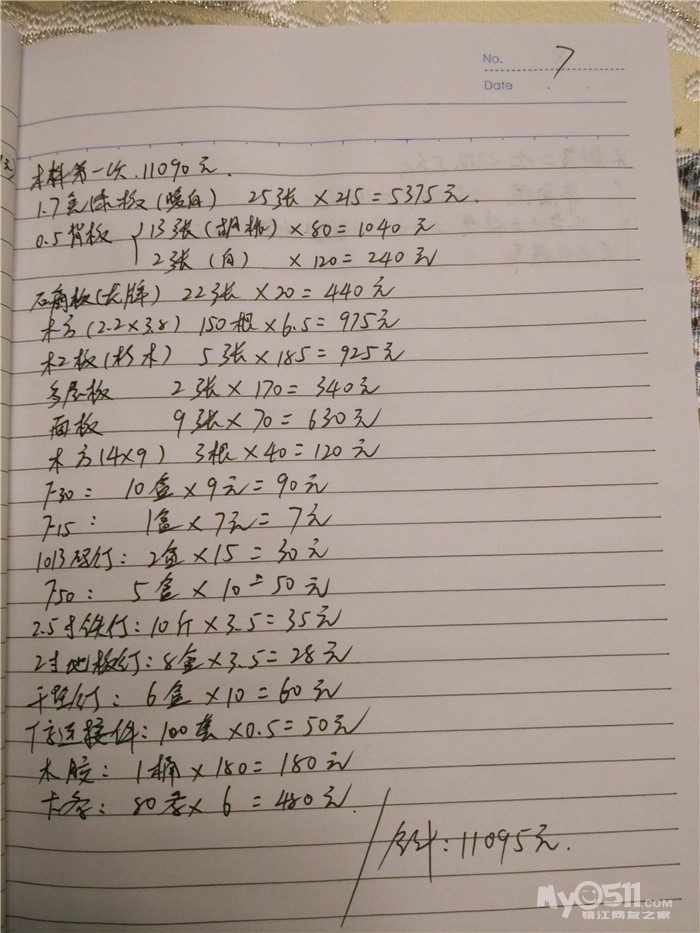 No. 7
Date
木料第一次.11090元.
1.7生态板(暖白) 25张×215=5375元.
0.5背板 13张(胡桃)×80=1040元
2张(白) ×120=240元
石膏板(龙牌) 22张×20=440元
木方(2.2×3.8) 150根×6.5=975元
木工板(杉木) 5张×185=925元
多层板 2张×170=340元
面板 9张×70=630元
木方(4×9) 3根×40=120元
F30: 10盒×9元=90元
F15: 1盒×7元=7元
1013码钉: 2盒×15=30元
F50: 5盒×10=50元
2.5寸铁钉: 10斤×3.5=35元
2寸地板钉: 8盒×3.5=28元
干壁钉: 6盒×10=60元
连接件: 100套×0.5=50元
木胶: 1桶×180=180元
卡条: 80×6=480元.
合计: 11095元.
My0511.COM
镇江网友之家